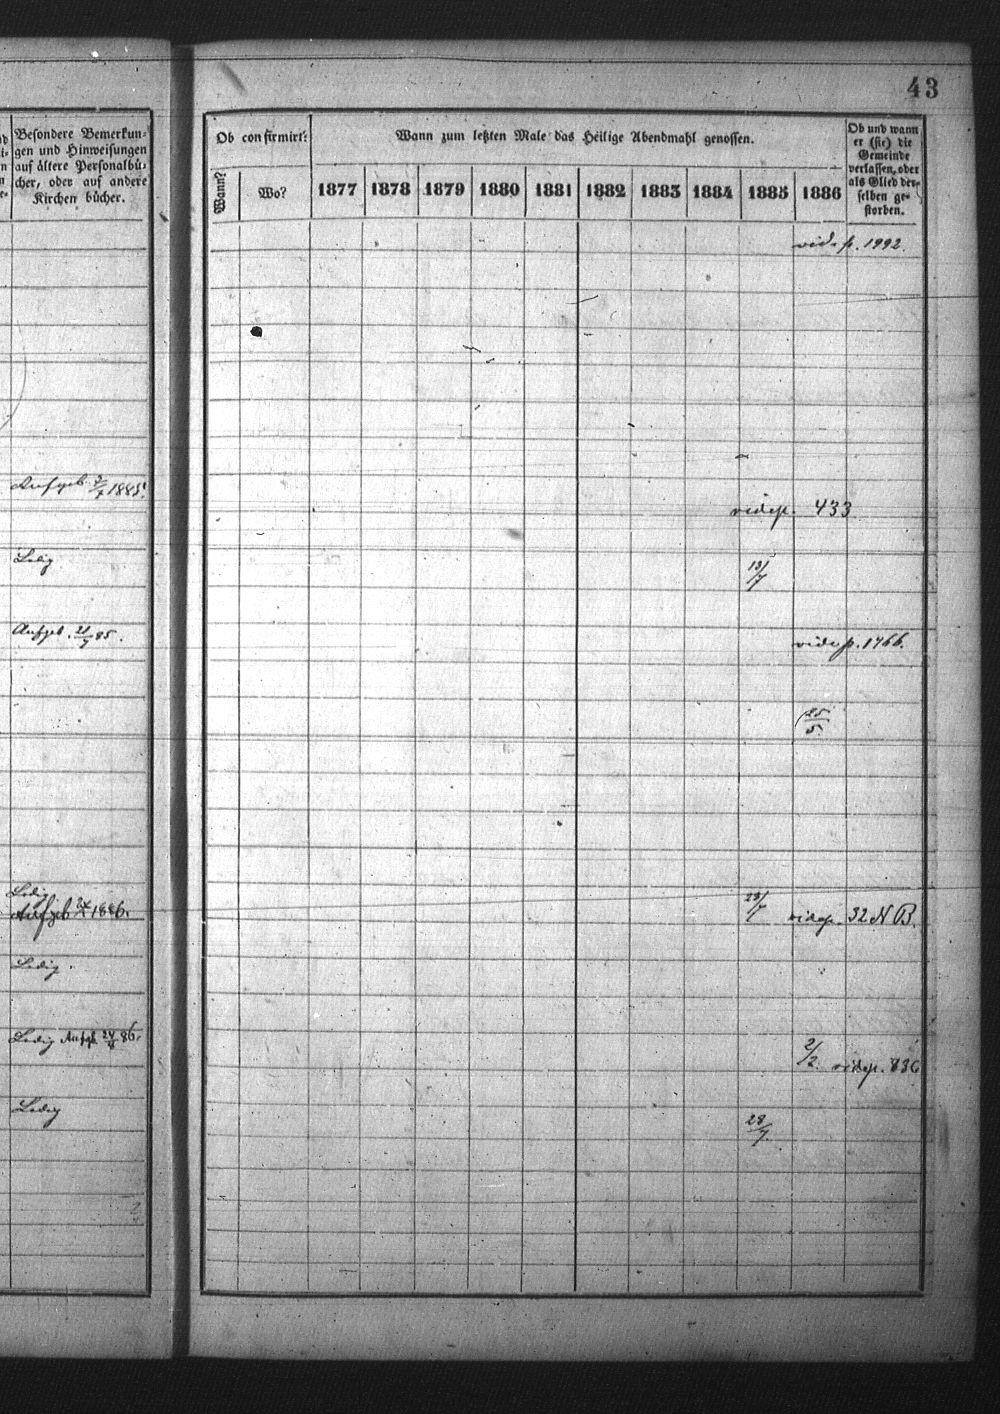 43
Besondere Bemerkun-
gen und Hinweisungen
auf ältere Personalbü-
cher, oder auf andere
Kirchen bücher.
Ob confirmirt?
Wann?
Wo?
Wann zum letzten Male das Heilige Abendmahl genossen.
1877 1878 1879 1880 1881 1882 1883 1884 1885 1886
Ob und wann
er (sie) die
Gemeinde
verlassen, oder
als Glied der-
selben ge-
storben.
vide p. 1992.
Aufgeb. 7/7 1885.
vide p. 433
Ledig
13/7
Aufgeb. 21/7 85.
vide p. 1766.
25/5.
Ledig
Aufgeb 1886.
23/7
vide p. 32 N B.
Ledig.
Ledig Aufgb. 86.
2/2. vide p. 836
Ledig
28/7.